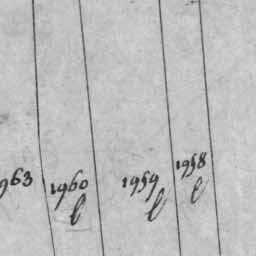 963 1960 1959 1958
l l l